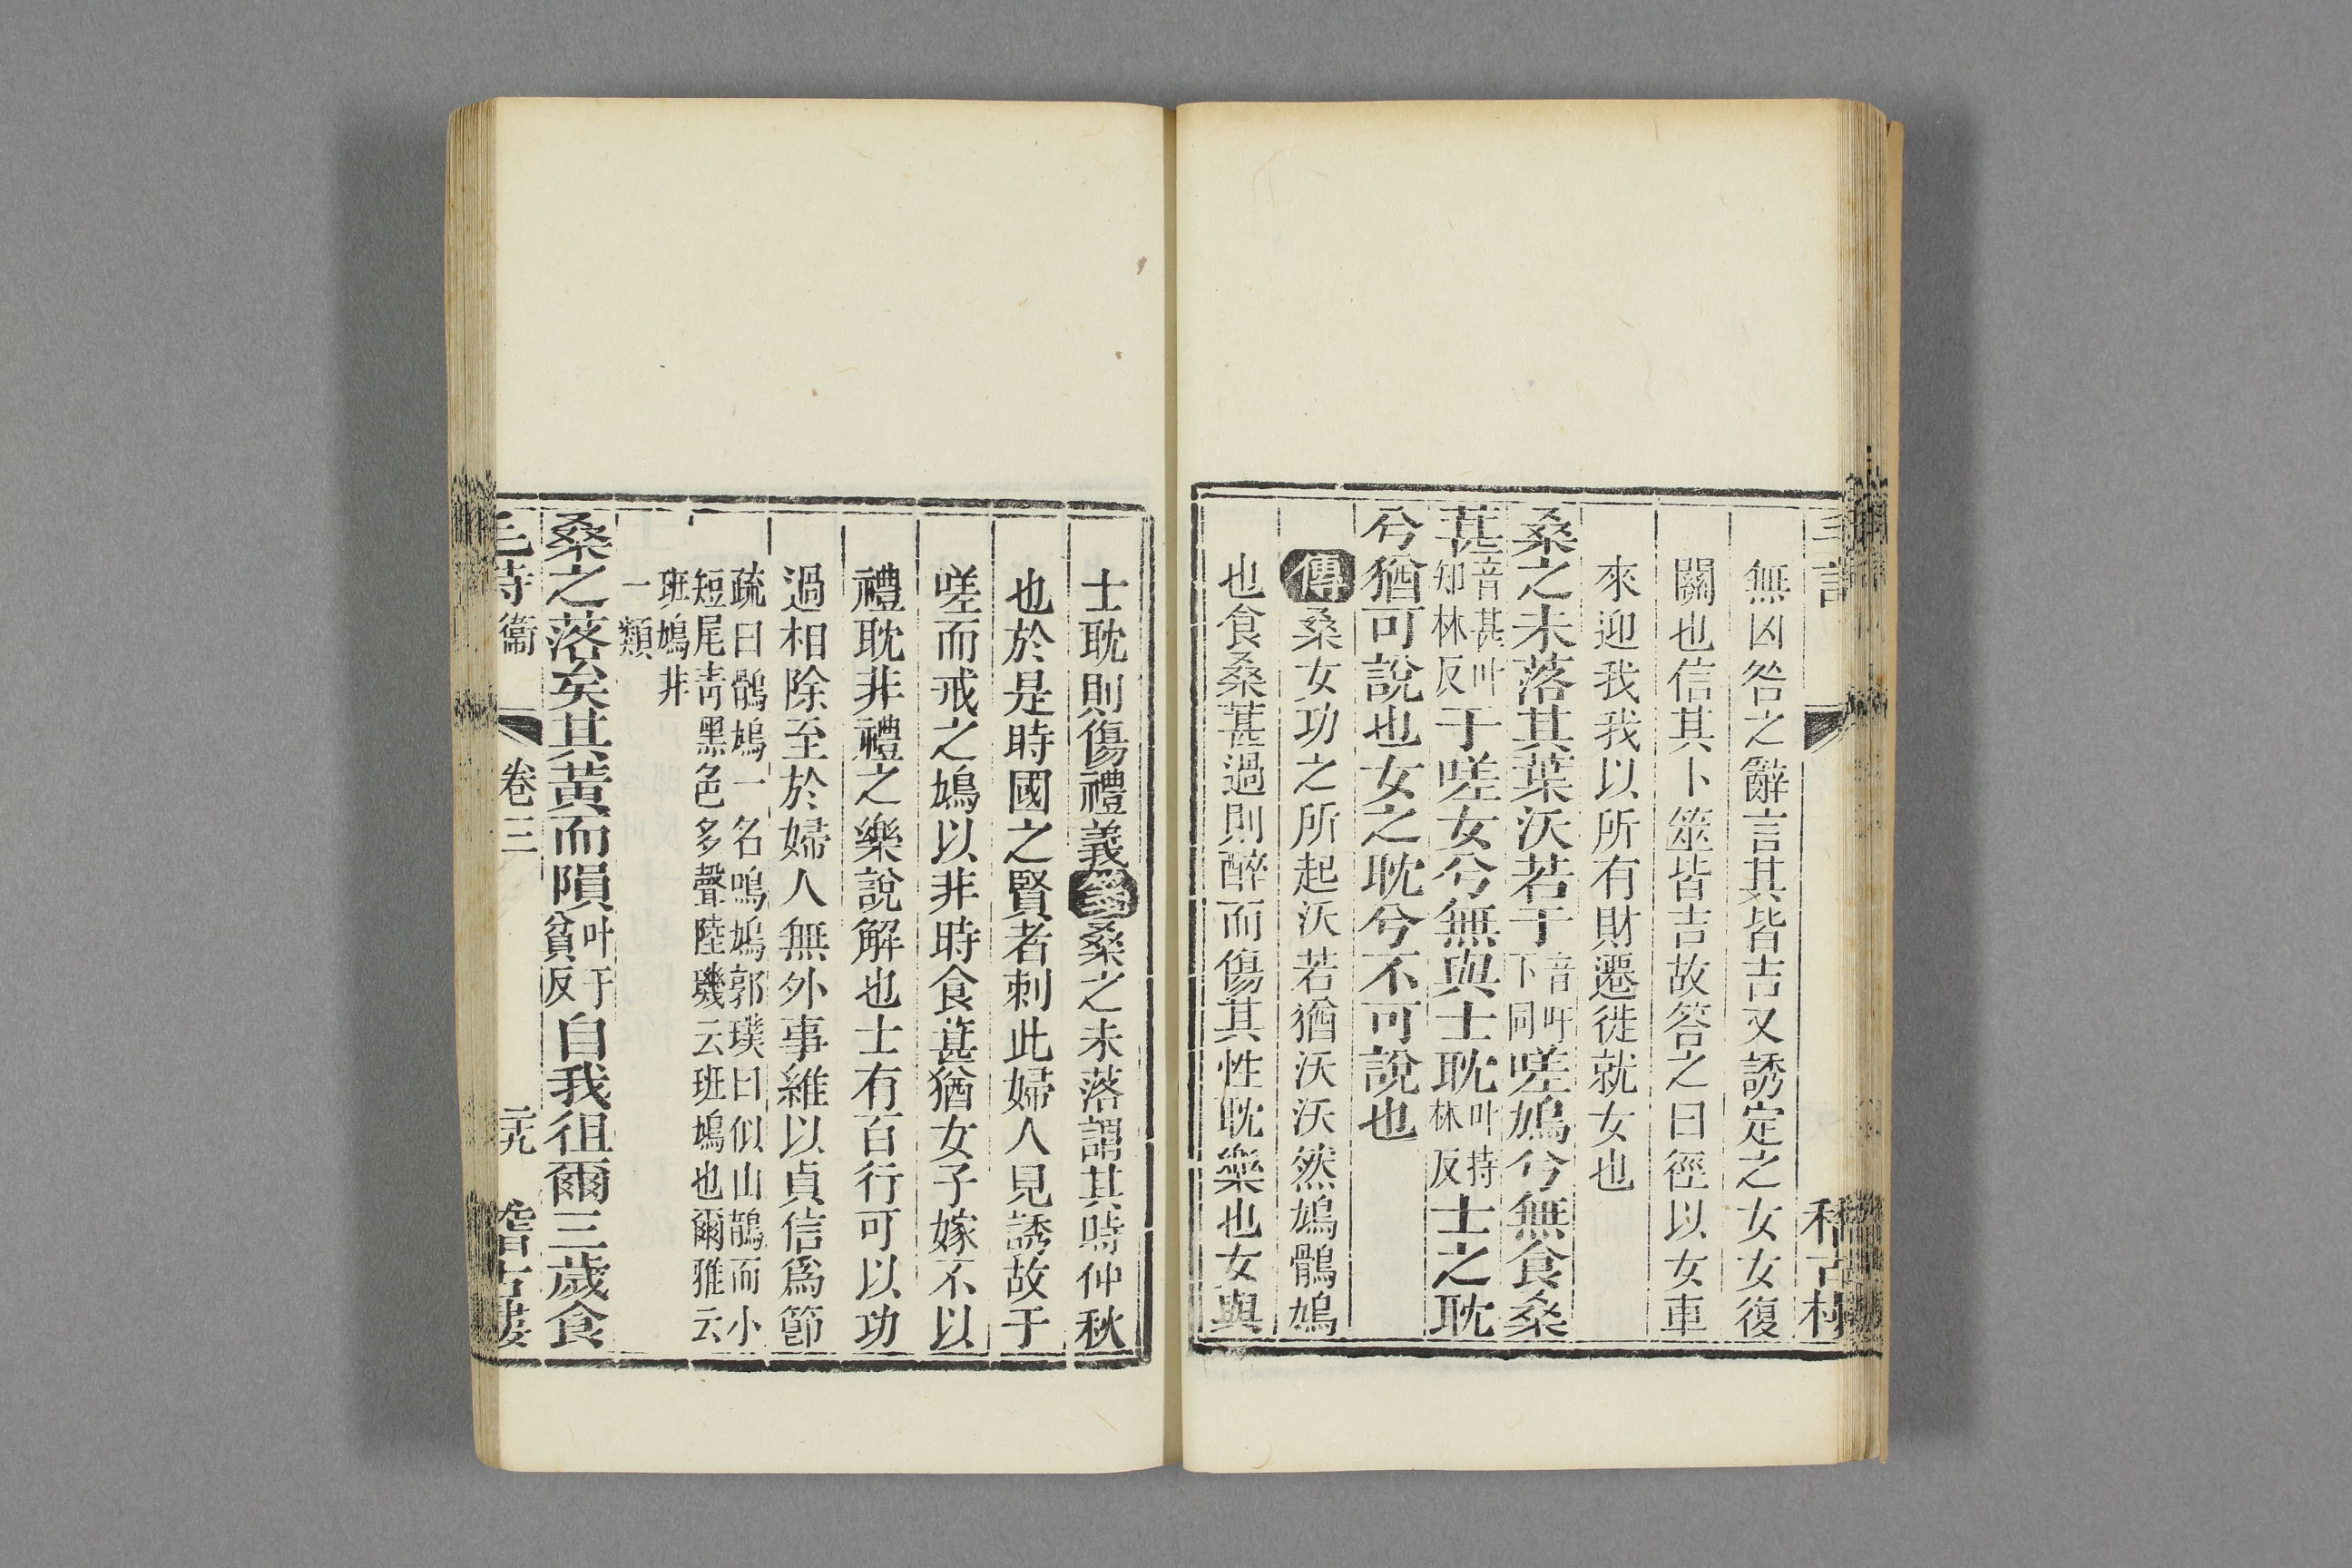 無凶咎之辭言其皆吉又誘定之女女復
關也信其卜筮皆吉故答之曰徑以女車
來迎我我以所有財遷徙就女也
桑之未落其葉沃若于音吁下同嗟鳩兮無食桑
葚音甚叶知林反于嗟女兮無與士耽叶持林反士之耽
兮猶可說也女之耽兮不可說也
傳桑女功之所起沃若猶沃沃然鳩鶻鳩
也食桑葚過則醉而傷其性耽樂也女與
士耽則傷禮義箋桑之未落謂其時仲秋
也於是時國之賢者刺此婦人見誘故于
嗟而戒之鳩以非時食葚猶女子嫁不以
禮耽非禮之樂說解也士有百行可以功
過相除至於婦人無外事維以貞信爲節
疏曰鶻鳩一名鳴鳩郭璞曰似山鵲而小
短尾靑黑色多聲陸璣云班鳩也爾雅云
班鳩非
一類
桑之落矣其黃而隕叶于貧反自我徂爾三歲食
毛詩衞 卷三 二九 稽古樓